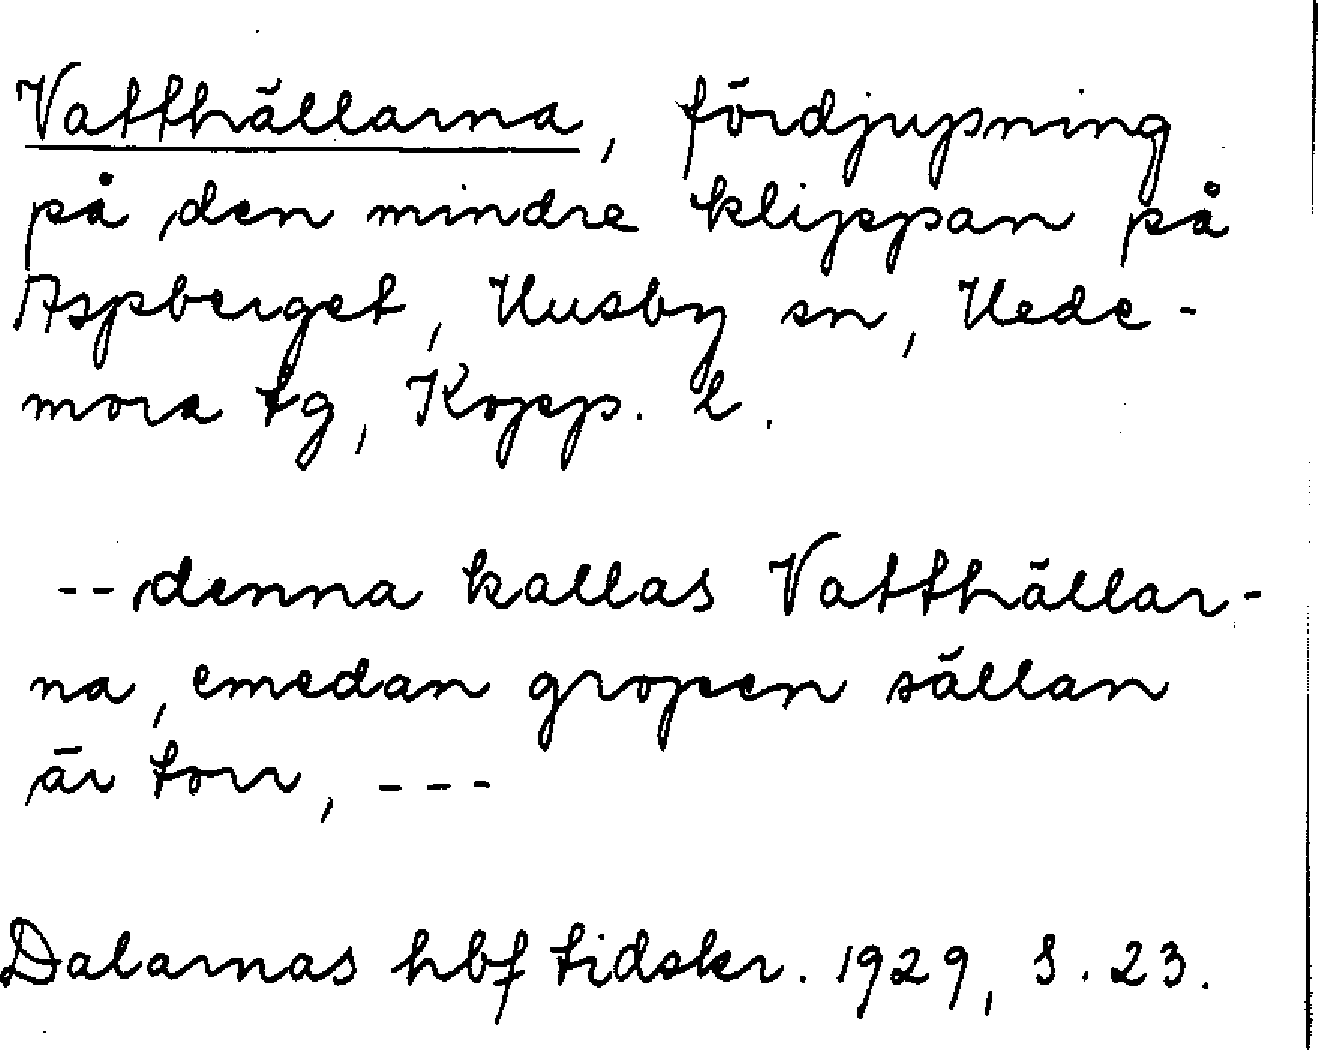 Vatthällarna, fördjupning
på den mindre klippan på
Aspberget, Husby sn, Hede-
mora tg, Kopp. l.
-- denna kallas Vatthällar-
na, emedan gropen sällan
är torr, ---
Dalarnas hbf tidskr. 1929, s. 23.